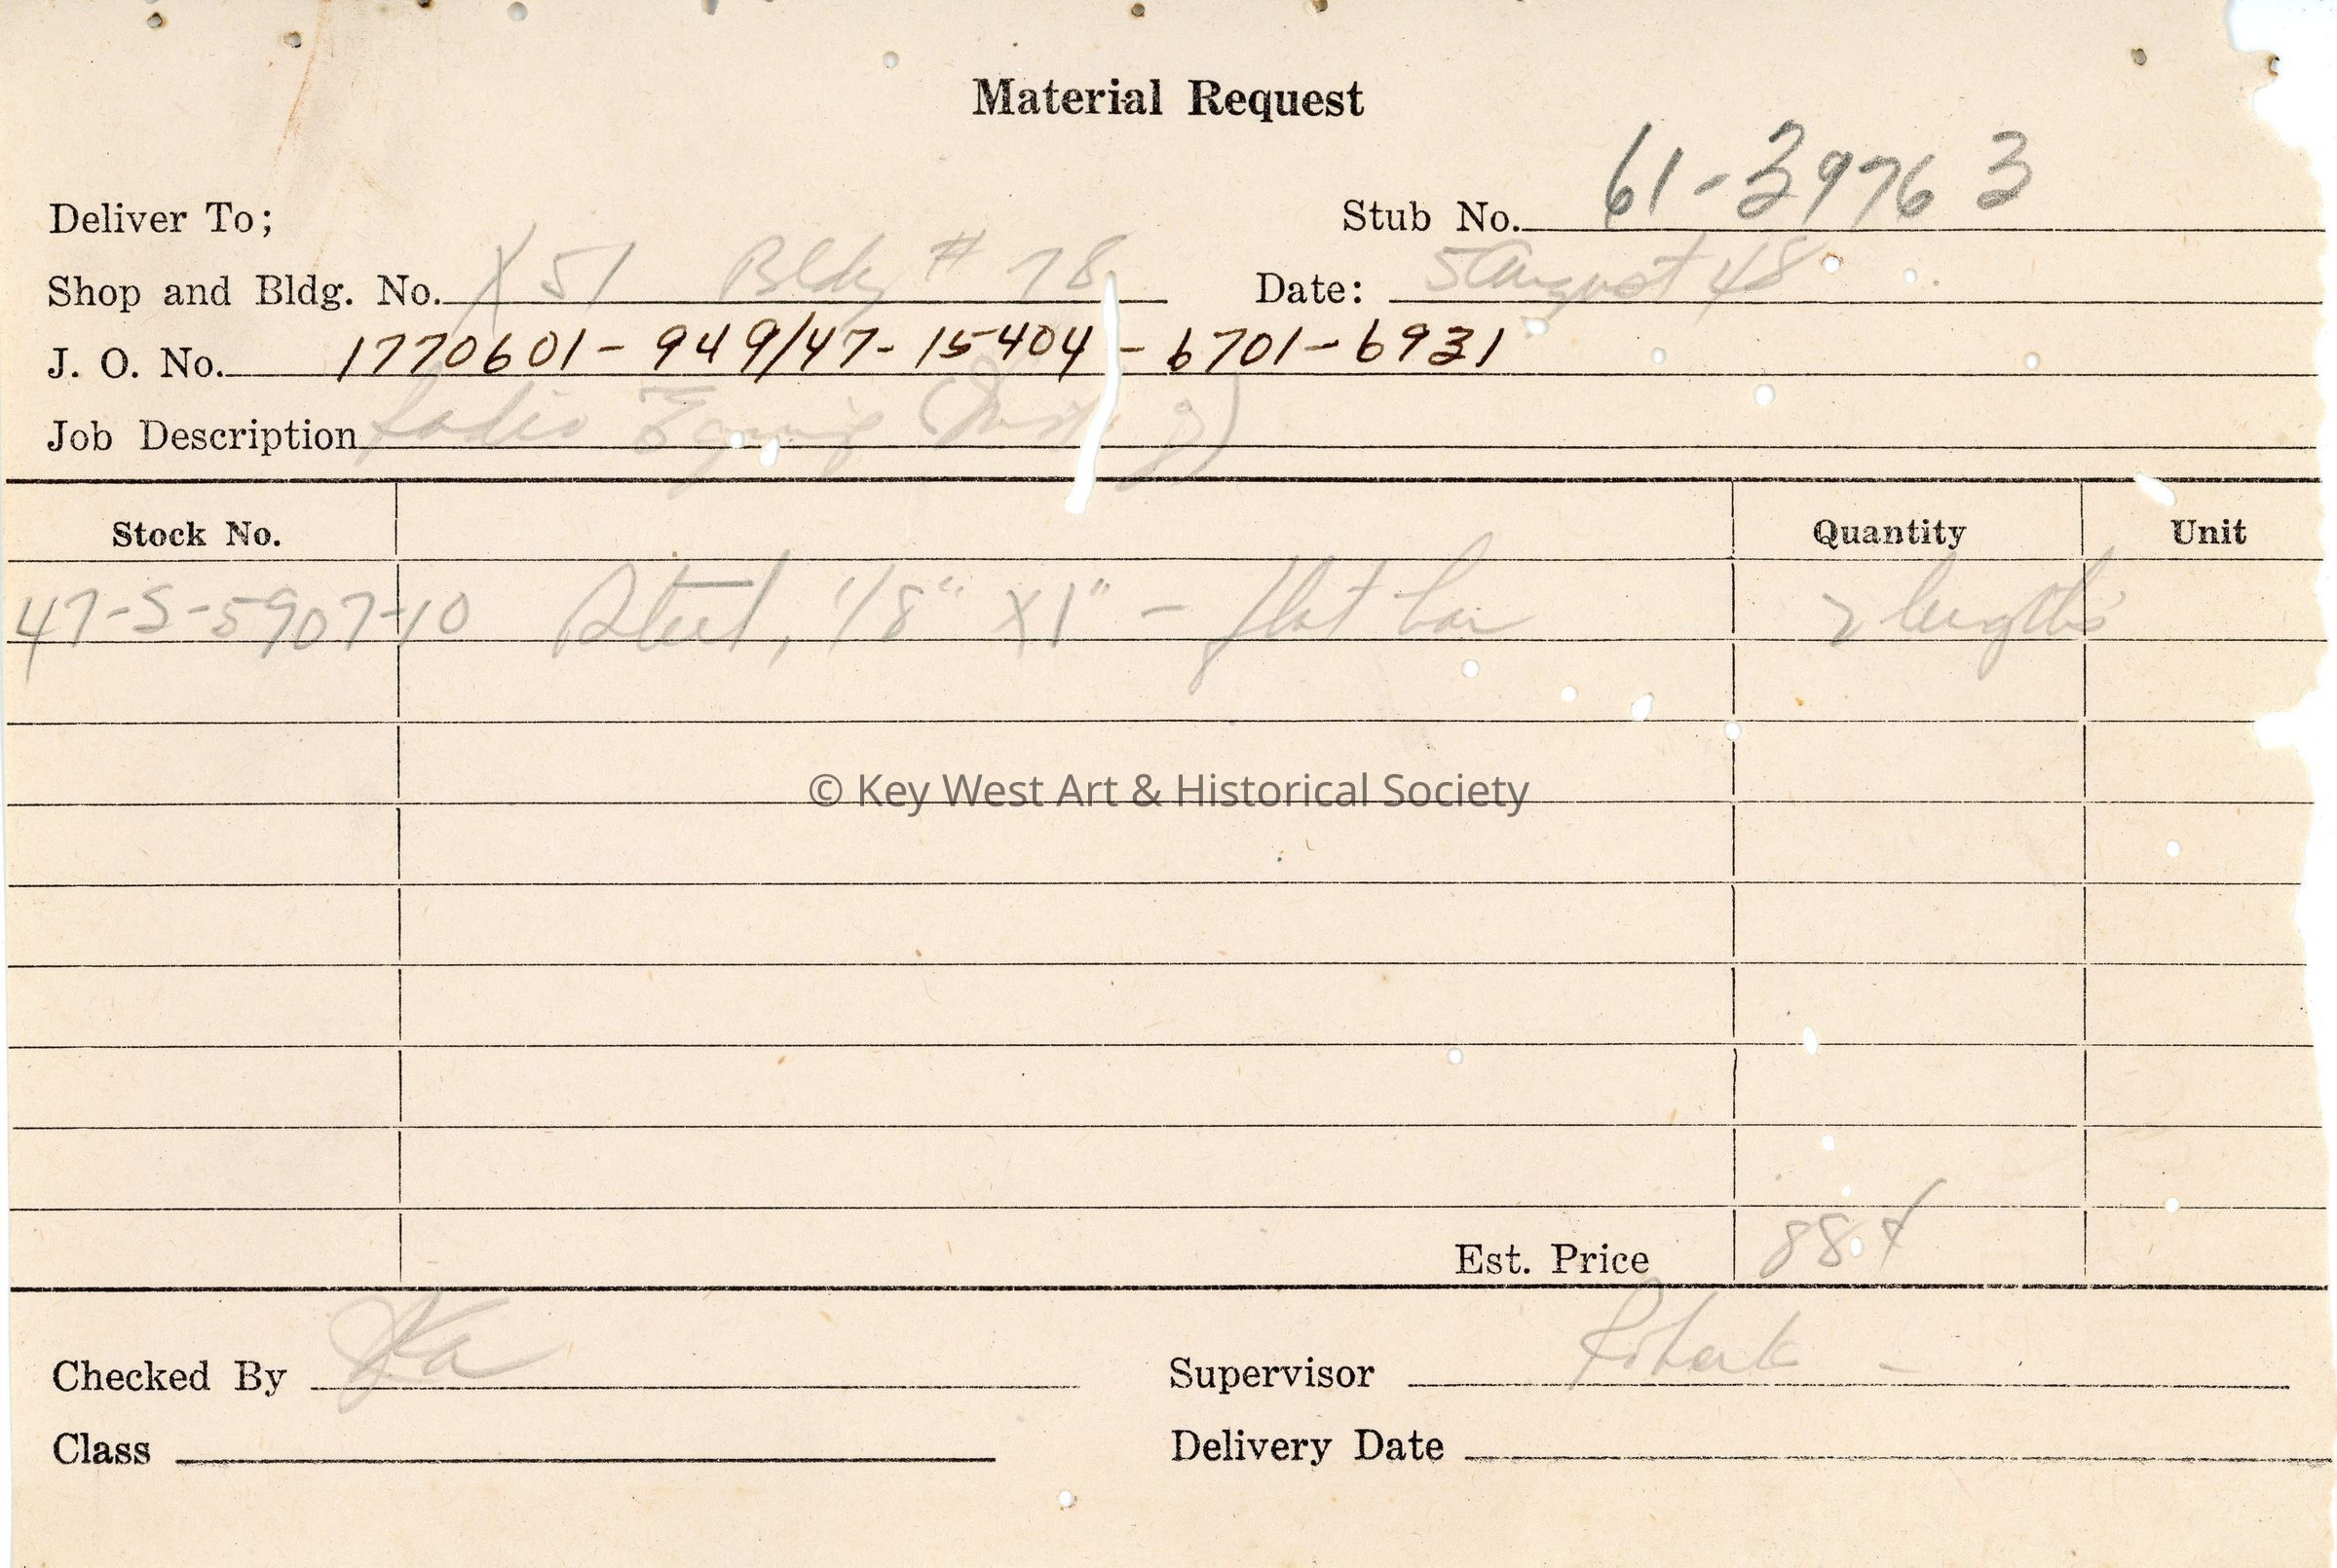 Material Request
Deliver To; Stub No. 61-39763
Shop and Bldg. No. X51 Bldg # 78 Date: 5 August 48
J. O. No. 1770601-949/47-15404-6701-6931
Job Description Radio Equip
Stock No. Quantity Unit
47-S-5907-10 Steel, 1/8" X 1" - flat bar 2 lengths
© Key West Art & Historical Society
Est. Price 88¢
Checked By Supervisor
Class Delivery Date